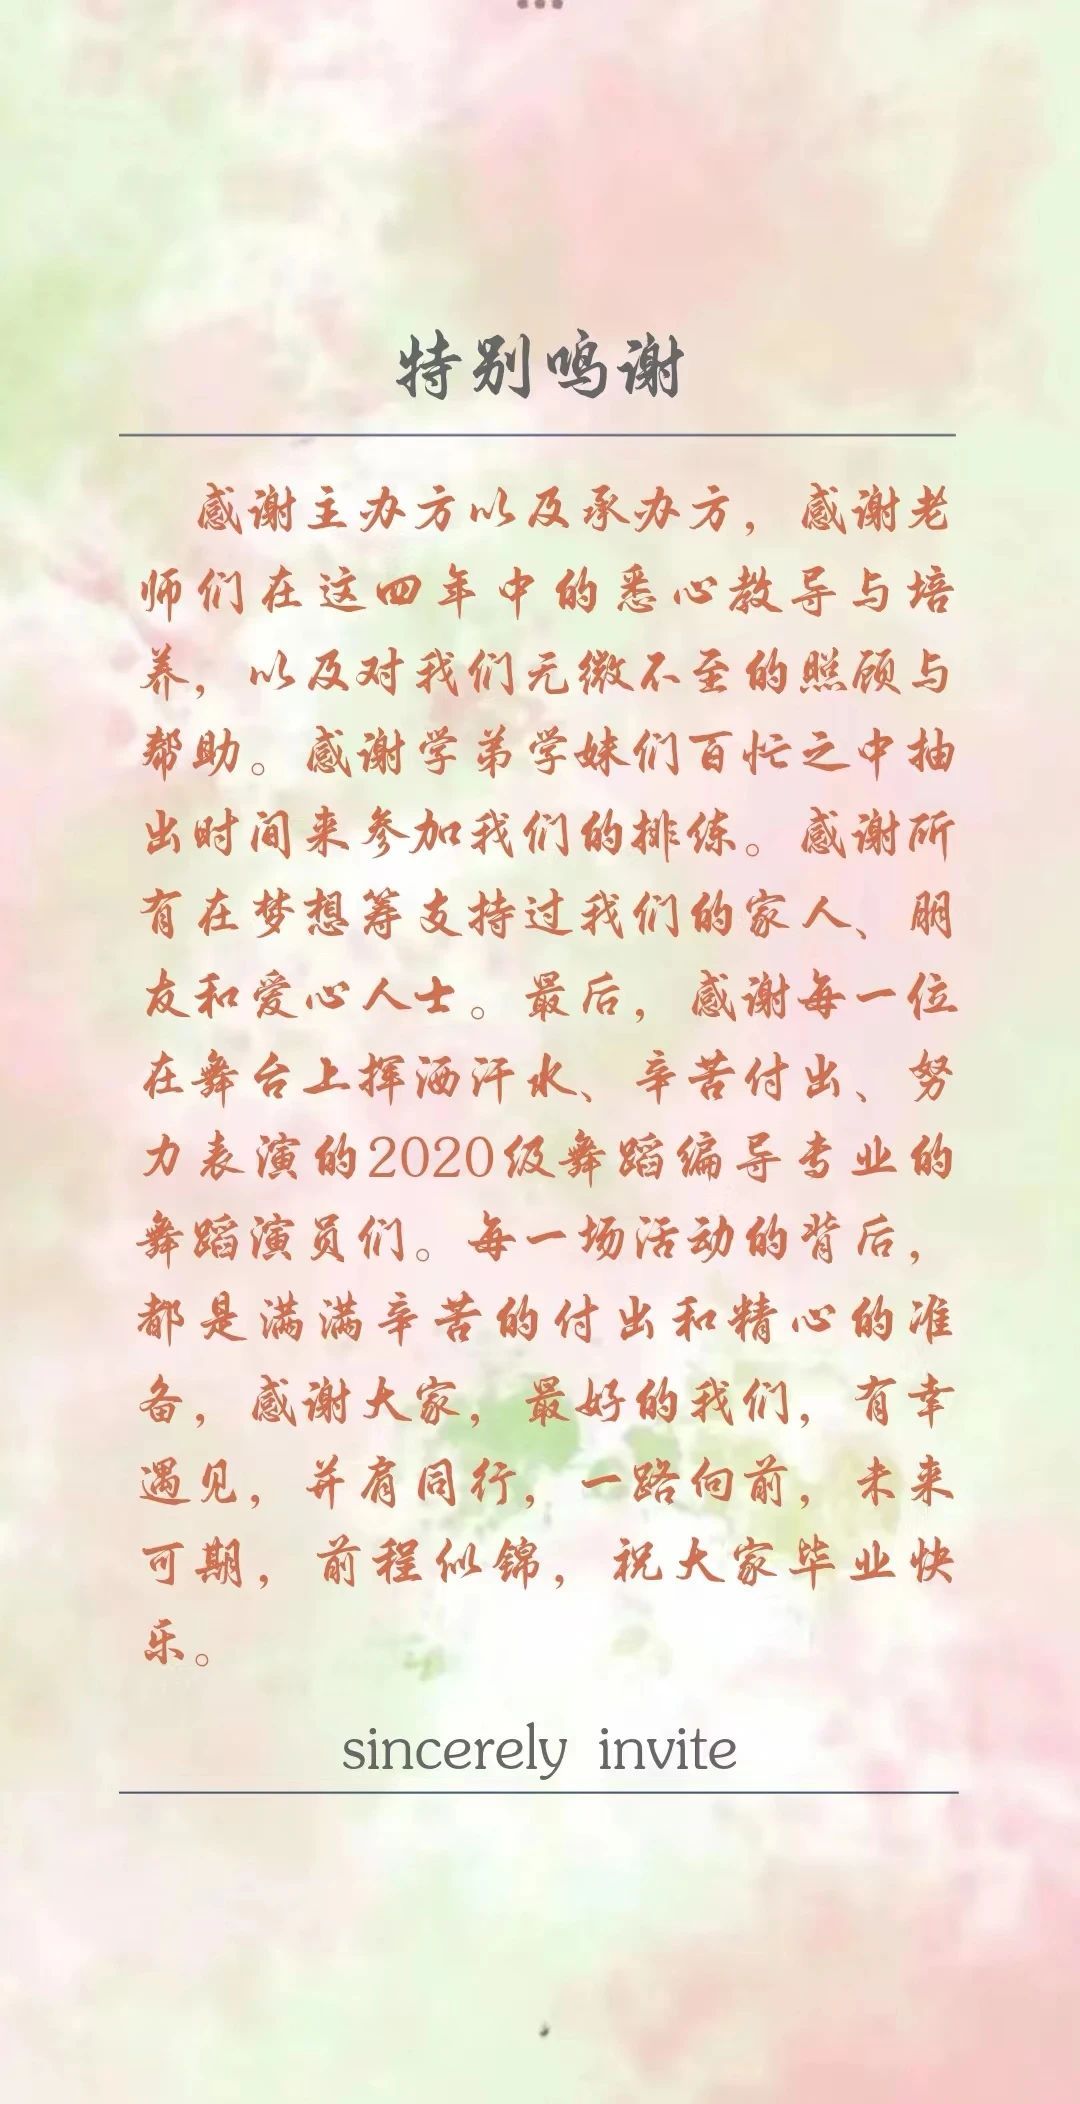 特别鸣谢
感谢主办方以及承办方，感谢老
师们在这四年中的悉心教导与培
养，以及对我们无微不至的照顾与
帮助。感谢学弟学妹们百忙之中抽
出时间来参加我们的排练。感谢所
有在梦想筹支持过我们的家人、朋
友和爱心人士。最后，感谢每一位
在舞台上挥洒汗水、辛苦付出、努
力表演的2020级舞蹈编导专业的
舞蹈演员们。每一场活动的背后，
都是满满辛苦的付出和精心的准
备，感谢大家，最好的我们，有幸
遇见，并肩同行，一路向前，未来
可期，前程似锦，祝大家毕业快
乐。
sincerely invite